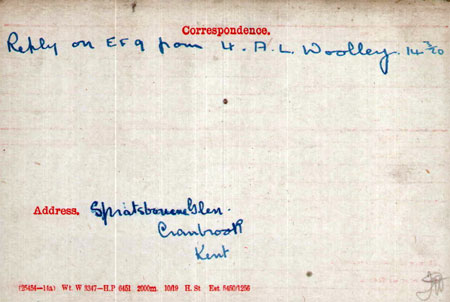 Correspondence.
Reply on EF9 from H. A. L. Woolley. 14/3/20
Address. Spratsbourne Glen.
Cranbrook
Kent
(25434—14a) Wt. W 3347—H.P 6451. 2000m. 10/19 H. St Est 5460/1256